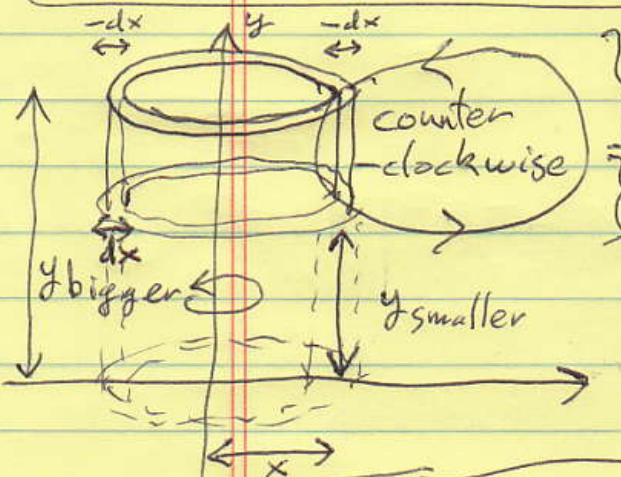 -dx
y
-dx
counter
-clockwise
dx
y bigger
y smaller
x